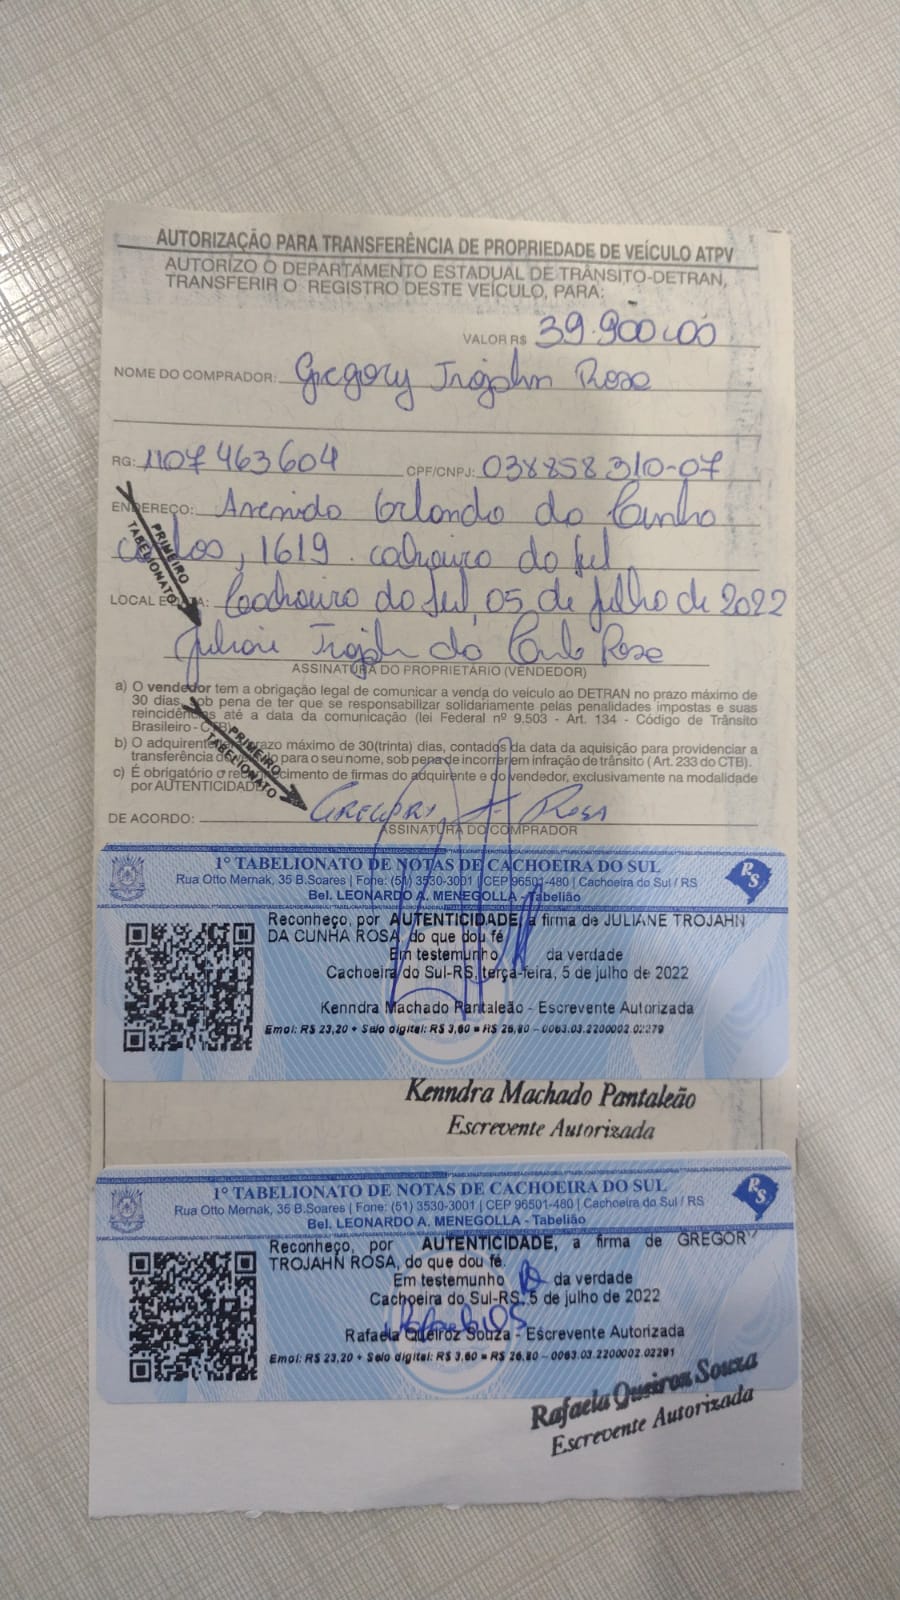 AUTORIZAÇÃO PARA TRANSFERÊNCIA DE PROPRIEDADE DE VEÍCULO ATPV
AUTORIZO O DEPARTAMENTO ESTADUAL DE TRÂNSITO-DETRAN,
TRANSFERIR O REGISTRO DESTE VEÍCULO, PARA:
VALOR R$ 39.900,00
NOME DO COMPRADOR: Gregory Trojahn Rosa
RG: 1107463604 CPF/CNPJ: 038858310-07
ENDEREÇO: Avenida Orlando da Cunha
Carlos, 1619. Cachoeira do Sul
LOCAL E DATA: Cachoeira do Sul, 05 de Julho de 2022
Juliane Trojahn da Cunha Rosa
ASSINATURA DO PROPRIETÁRIO (VENDEDOR)
PRIMEIRO
TABELIONATO
a) O vendedor tem a obrigação legal de comunicar a venda do veículo ao DETRAN no prazo máximo de
30 dias, sob pena de ter que se responsabilizar solidariamente pelas penalidades impostas e suas
reincidências até a data da comunicação (lei Federal nº 9.503 - Art. 134 - Código de Trânsito
Brasileiro - CTB).
b) O adquirente prazo máximo de 30(trinta) dias, contados da data da aquisição para providenciar a
transferência do veículo para o seu nome, sob pena de incorrer em infração de trânsito (Art. 233 do CTB).
c) É obrigatório o reconhecimento de firmas do adquirente e do vendedor, exclusivamente na modalidade
por AUTENTICIDADE.
PRIMEIRO
TABELIONATO
DE ACORDO: GREGORY T ROSA
ASSINATURA DO COMPRADOR
1º TABELIONATO DE NOTAS DE CACHOEIRA DO SUL
Rua Otto Mernak, 35 B.Soares | Fone: (51) 3530-3001 | CEP 96501-480 | Cachoeira do Sul / RS
Bel. LEONARDO A. MENEGOLLA - Tabelião
RS
Reconheço, por AUTENTICIDADE, a firma de JULIANE TROJAHN
DA CUNHA ROSA, do que dou fé.
Em testemunho da verdade
Cachoeira do Sul-RS, terça-feira, 5 de julho de 2022
Kenndra Machado Pantaleão - Escrevente Autorizada
Emol: R$ 23,20 + Selo digital: R$ 3,60 = R$ 26,80 - 0063.03.2200002.02279
Kenndra Machado Pantaleão
Escrevente Autorizada
1º TABELIONATO DE NOTAS DE CACHOEIRA DO SUL
Rua Otto Mernak, 35 B.Soares | Fone: (51) 3530-3001 | CEP 96501-480 | Cachoeira do Sul / RS
Bel. LEONARDO A. MENEGOLLA - Tabelião
RS
Reconheço, por AUTENTICIDADE, a firma de GREGORY
TROJAHN ROSA, do que dou fé.
Em testemunho da verdade
Cachoeira do Sul-RS, 5 de julho de 2022
Rafaela Queiroz Souza - Escrevente Autorizada
Emol: R$ 23,20 + Selo digital: R$ 3,60 = R$ 26,80 - 0063.03.2200002.02281
Rafaela Queiroz Souza
Escrevente Autorizada